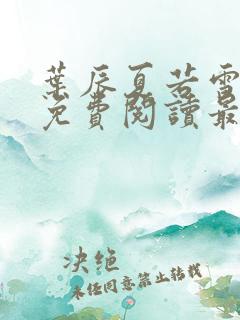 葉辰夏若雪
免費閱讀最
决绝
未经同意禁止转载